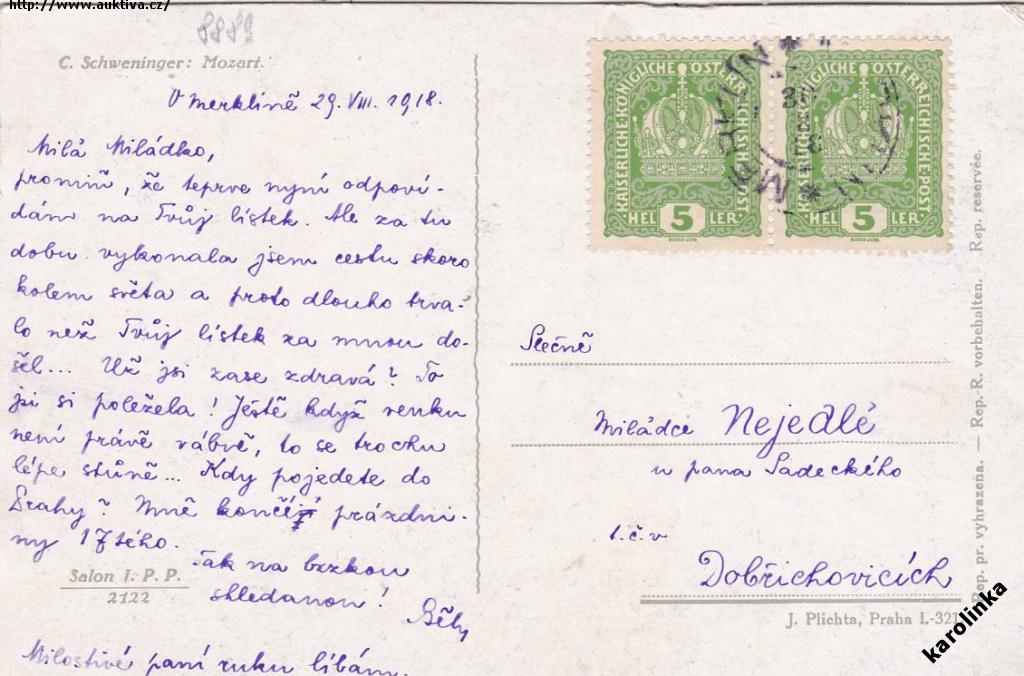 http://www.auktiva.cz/
8889
C. Schweninger: Mozart.
V Merklíně 29. VIII. 1918.
Milá Miládko,
promiň, že teprve nyní odpoví-
dám na Tvůj lístek. Ale za tu
dobu vykonala jsem cestu skoro
kolem světa a proto dlouho trva-
lo než Tvůj lístek za mnou do-
šel... Už jsi zase zdravá? To
jsi si poležela! Ještě když venku
není právě vábně, to se trochu
lépe stůně... Kdy pojedete do
Prahy? Mně končí prázdni-
ny 17tého.
Tak na brzkou
shledanou!
Běla
Milostivé paní ruku líbám.
Salon J. P. P.
2122
KAISERLICHE KÖNIGLICHE ÖSTERREICHISCHE POST
HEL 5 LER
KAISERLICHE KÖNIGLICHE ÖSTERREICHISCHE POST
HEL 5 LER
MERKLIN
Slečně
Miládce Nejedlé
u pana Sadeckého
t.č. v
Dobřichovicích
J. Plichta, Praha I.-321
Rep. pr. vyhrazena. — Rep.-R. vorbehalten. Rep. reservée.
karolinka